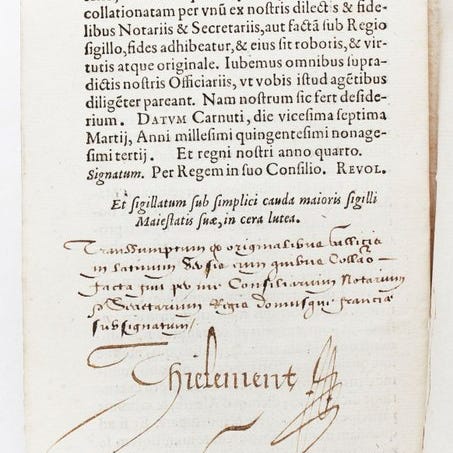 collationatam per vnũ ex nostris dilectis & fide-
libus Notariis & Secretariis, aut factã sub Regio
sigillo, fides adhibeatur, & eius sit roboris, & vir-
tutis atque originale. Iubemus omnibus supra-
dictis nostris Officiariis, vt vobis istud agẽtibus
diligẽter pareant. Nam nostrum sic fert deside-
rium. DATVM Carnuti, die vicesima septima
Martij, Anni millesimi quingentesimi nonage-
simi tertij. Et regni nostri anno quarto.
Signatum. Per Regem in suo Consilio. REVOL.
Et sigillatum sub simplici cauda maioris sigilli
Maiestatis suæ, in cera lutea.
Transsumptum originalibus
in latinum quibus Collatio
facta fuit per me Consiliarium Notarium
Secretarium Regis domusque franciæ
subsignatum
Thielement